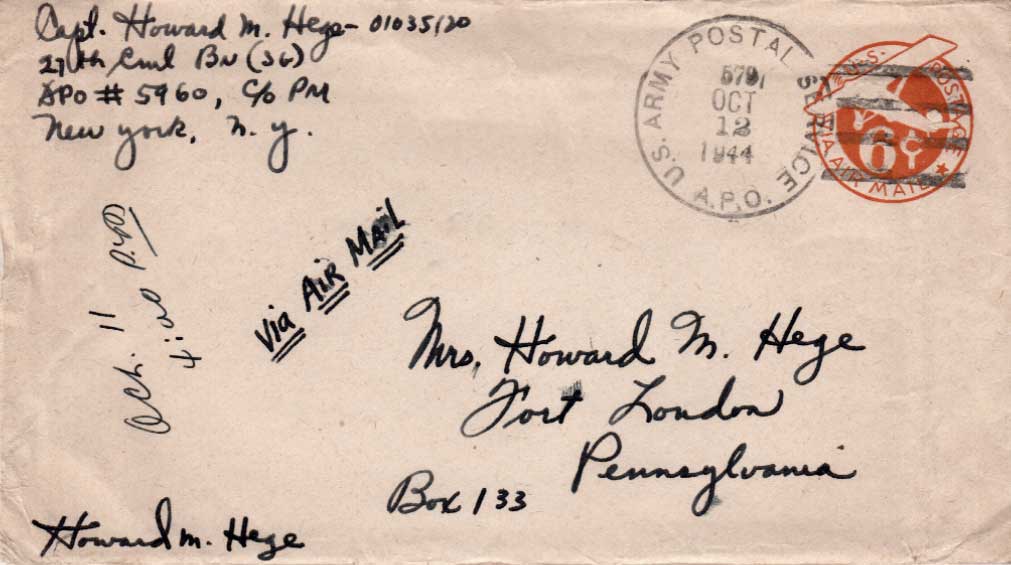 Capt. Howard M. Hege - 01035120
27th Cml Bn (SG)
APO # 5960, c/o PM
New York, N. Y.
U.S. ARMY POSTAL SERVICE
579
OCT
12
1944
A.P.O.
U.S. POSTAGE
6¢
VIA AIR MAIL
Oct. 11
Via Air Mail
Mrs. Howard M. Hege
Fort Loudon
Pennsylvania
Box 133
Howard M. Hege